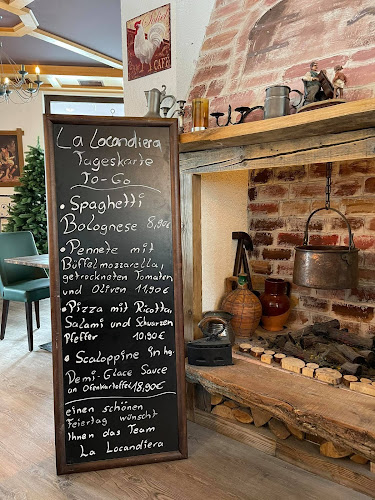 CAFE
La Locandiera
Tageskarte
To-Go
• Spaghetti
Bolognese 8,90€
• Pennete mit
Buffelmozzarella,
getrockneten Tomaten
und Oliven 11,90€
• Pizza mit Ricotta,
Salami und Schwarzen
Pfeffer 10,90€
• Scaloppine in
Demi-Glace Sauce
an Ofenkartoffel 18,90€
einen schönen
Feiertag wünscht
Ihnen das Team
La Locandiera